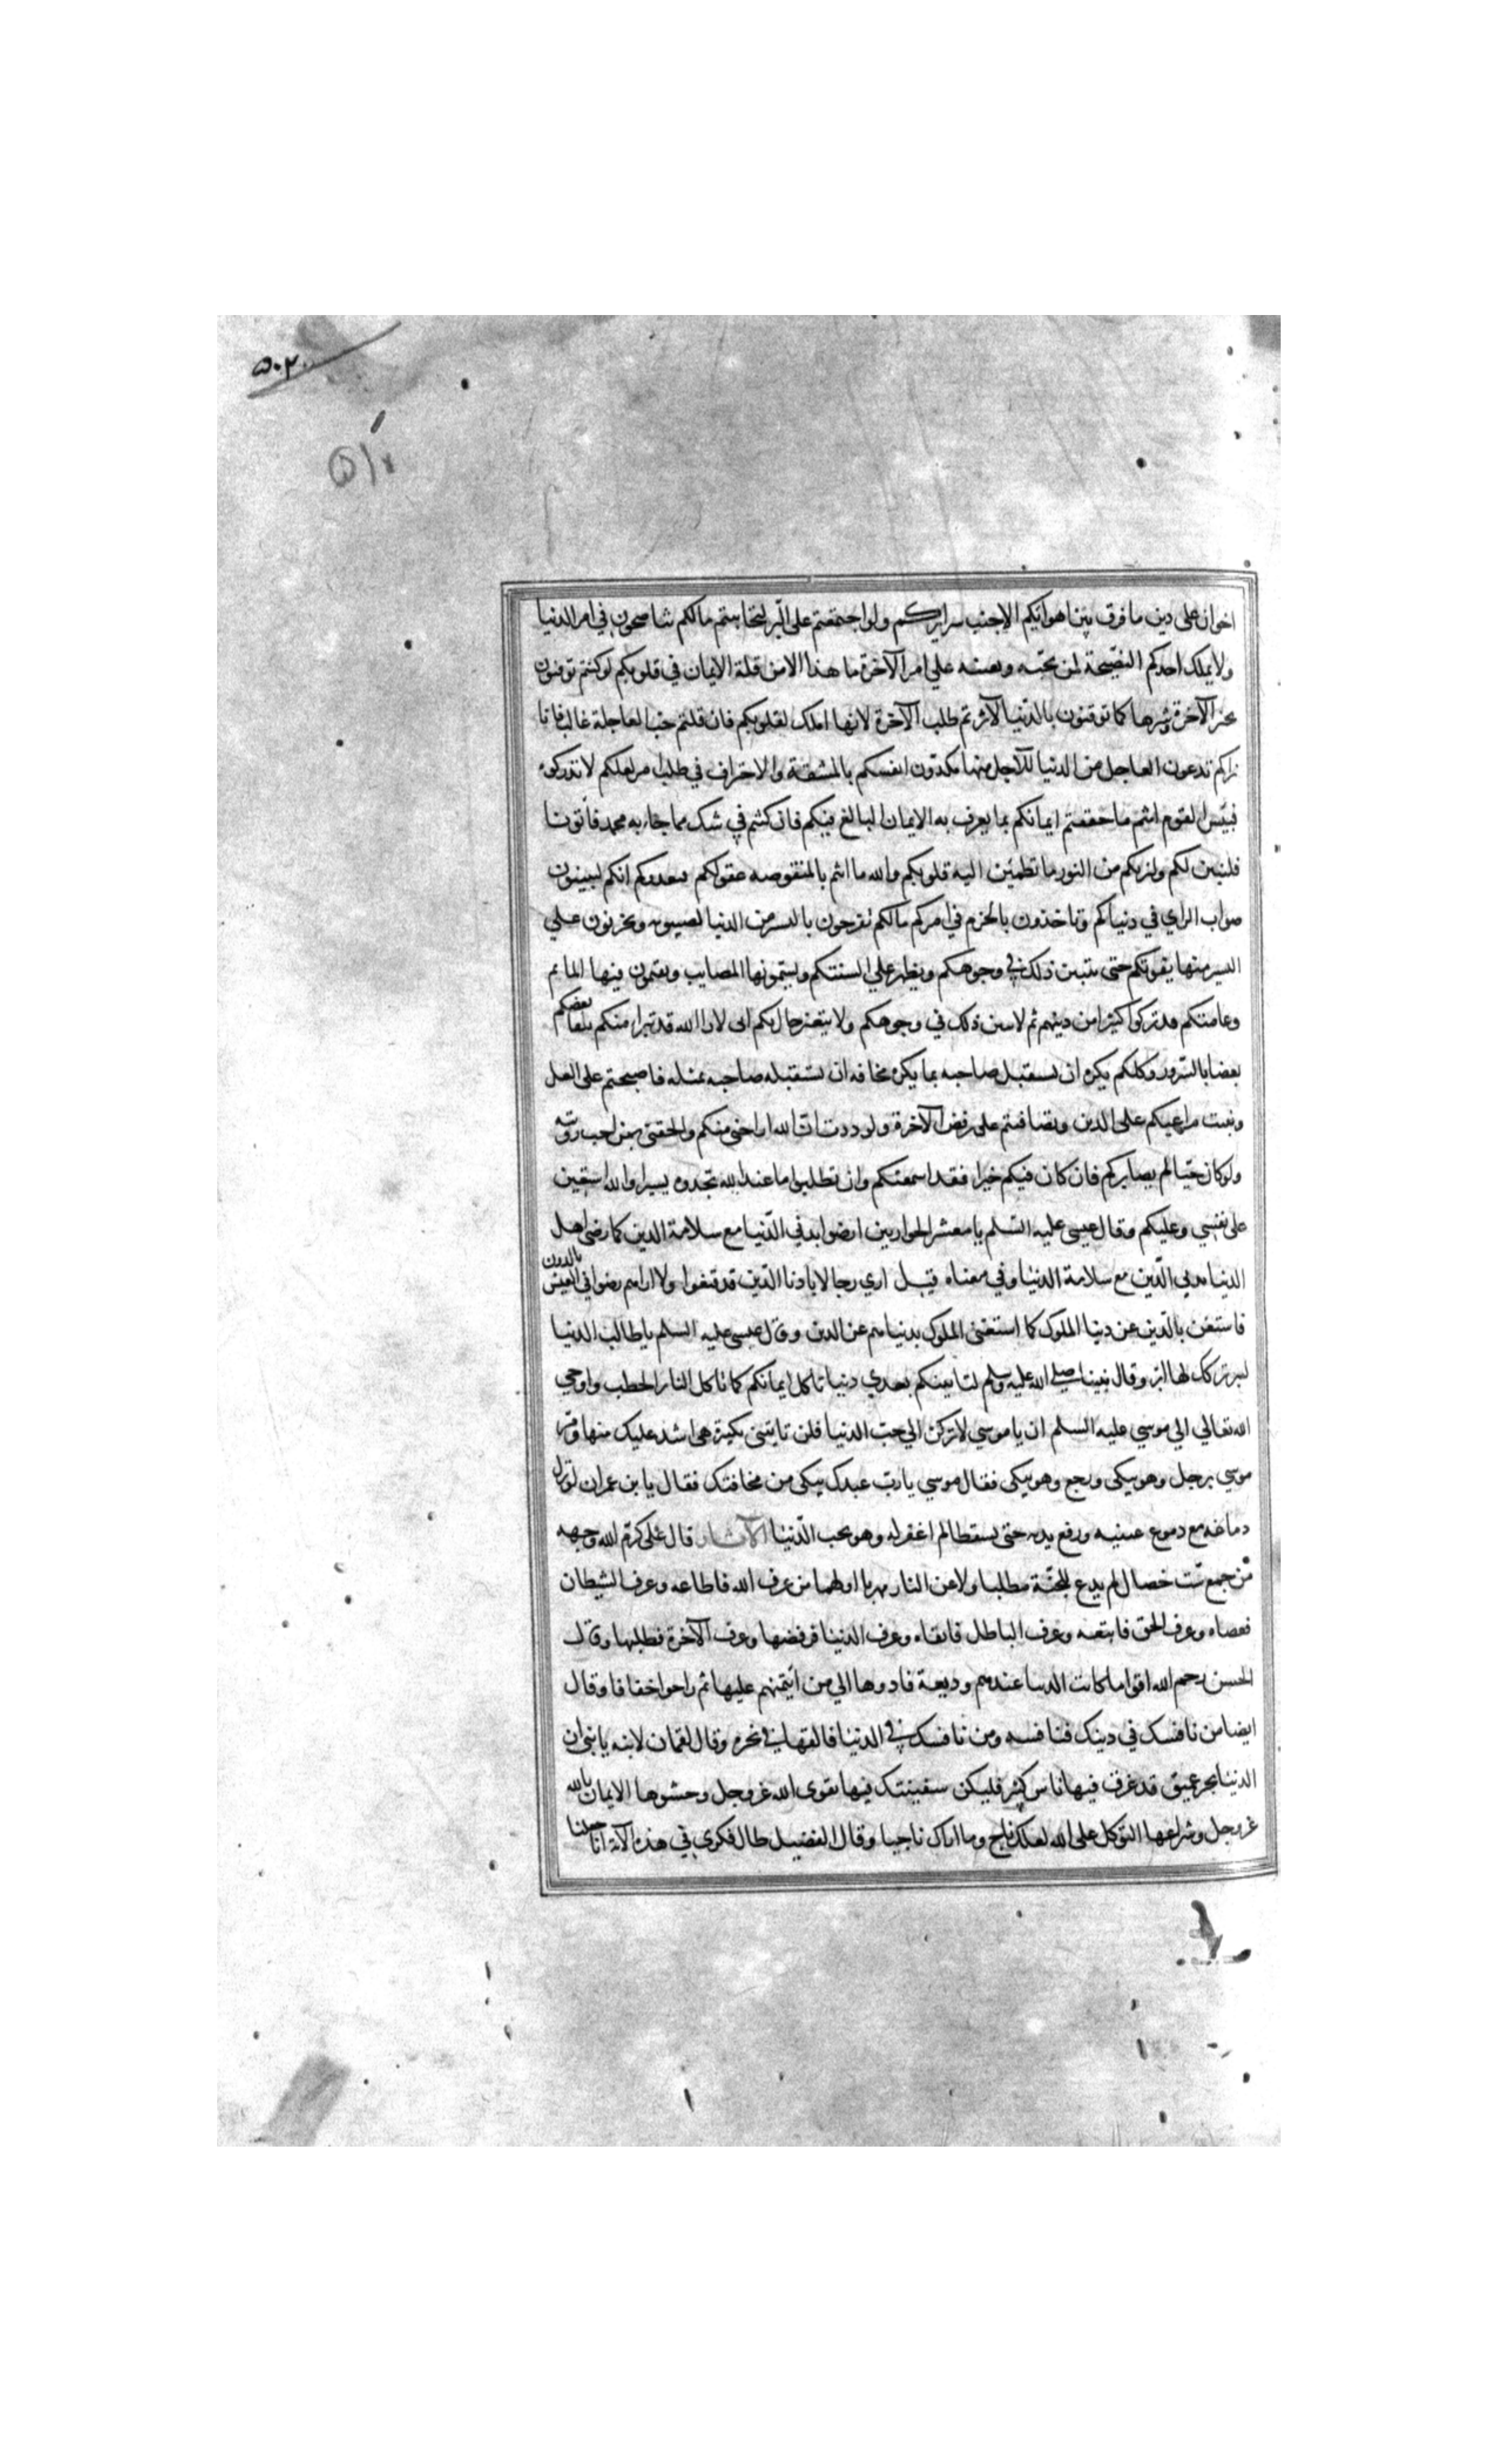 ٥٠٢
اخوان على دين ما فرق بين اهوائكم الا خبث سرايركم ولو اجتمعتم على البر لتحاببتم مالكم تناصحون في امر الدنيا
ولا يملك احدكم النصيحة لمن يحبه ويعينه على امر الآخرة ما هذا الا من قلة الايمان في قلوبكم لو كنتم توقنون
بخير الآخرة وشرها كما توقنون بالدنيا لآثرتم طلب الآخرة لانها املك لقلوبكم فان قلتم حب العاجلة غالب فانا
نراكم تدعون العاجل من الدنيا للآجل منها تكدون انفسكم بالمشقة والاحتراف في طلب امر لعلكم لا تدركونه
فبئس القوم انتم ما حققتم ايمانكم بما يعرف به الايمان البالغ فيكم فان كنتم في شك مما جاء به محمد فأتونا
فلنبين لكم ولنريكم من النور ما تطمئن اليه قلوبكم والله ما انتم بالمنقوصه عقولكم فنعذركم انكم لتبينون
صواب الراي في دنياكم وتاخذون بالحزم في امركم مالكم تفرحون باليسير من الدنيا تصيبونه وتحزنون علي
اليسير منها يفوتكم حتى يتبين ذلك في وجوهكم ويظهر علي السنتكم وتسمونها المصايب وتقيمون فيها المآتم
وعامتكم قد تركوا كثيرا من دينهم ثم لا يتبين ذلك في وجوهكم ولا يتغير حال بكم اني لارا الله قد تبرا منكم يلقا بعضكم
بعضا بالسرور وكلكم يكره ان يستقبل صاحبه بما يكره مخافة ان يستقبله صاحبه بمثله فاصبحتم على الغل
ونبتت مراعيكم على الدمن وتصافيتم على رفض الآخرة ولوددت ان الله اراحني منكم والحقني بمن احب رويته
ولو كان حيا لم يصابركم فان كان فيكم خيرا فقد اسمعتكم وان تطلبوا ما عند الله تجدوه يسيرا والله استعين
على نفسي وعليكم وقال عيسى عليه السلم يا معشر الحواريين ارضوا بدني الدنيا مع سلامة الدين كما رضي اهل
الدنيا بدني الدين مع سلامة الدنيا وفي معناه قيل اري رجالا بادنا الدين قد قنعوا ولا اراهم رضوا في العيش بالدون
فاستغن بالدين عن دنيا الملوك كما استغنى الملوك بدنياهم عن الدين وقال عيسى عليه السلم يا طالب الدنيا
لتبر تركك لها ابر وقال نبينا صلى الله عليه وسلم لتاتينكم بعدي دنيا تاكل ايمانكم كما تاكل النار الحطب واوحي
الله تعالي الي موسي عليه السلم ان يا موسي لا تركن الي حب الدنيا فلن تاتيني بكبيرة هي اشد عليك منها ومر
موسي برجل وهو يبكي ورجع وهو يبكي فقال موسي يا رب عبدك يبكي من مخافتك فقال يا بن عمران لو نزل
دماغه مع دموع عينيه ورفع يديه حتى يسقطا لم اغفر له وهو يحب الدنيا الآثار قال علي كرم الله وجهه
من جمع ست خصال لم يدع للجنة مطلبا ولا عن النار مهربا اولها من عرف الله فاطاعه وعرف الشيطان
فعصاه وعرف الحق فاتبعه وعرف الباطل فاتقاه وعرف الدنيا فرفضها وعرف الآخرة فطلبها وقال
الحسن رحم الله اقواما كانت الدنيا عندهم وديعة فادوها الي من ائتمنهم عليها ثم راحوا خفافا وقال
ايضا من نافسك في دينك فنافسه ومن نافسك في الدنيا فالقها في نحره وقال لقمان لابنه يا بني ان
الدنيا بحر عميق قد غرق فيها ناس كثير فليكن سفينتك فيها تقوى الله عز وجل وحشوها الايمان بالله
عز وجل وشراعها التوكل على الله لعلك ناج وما اراك ناجيا وقال الفضيل طال فكري في هذه الآية انا جعلنا